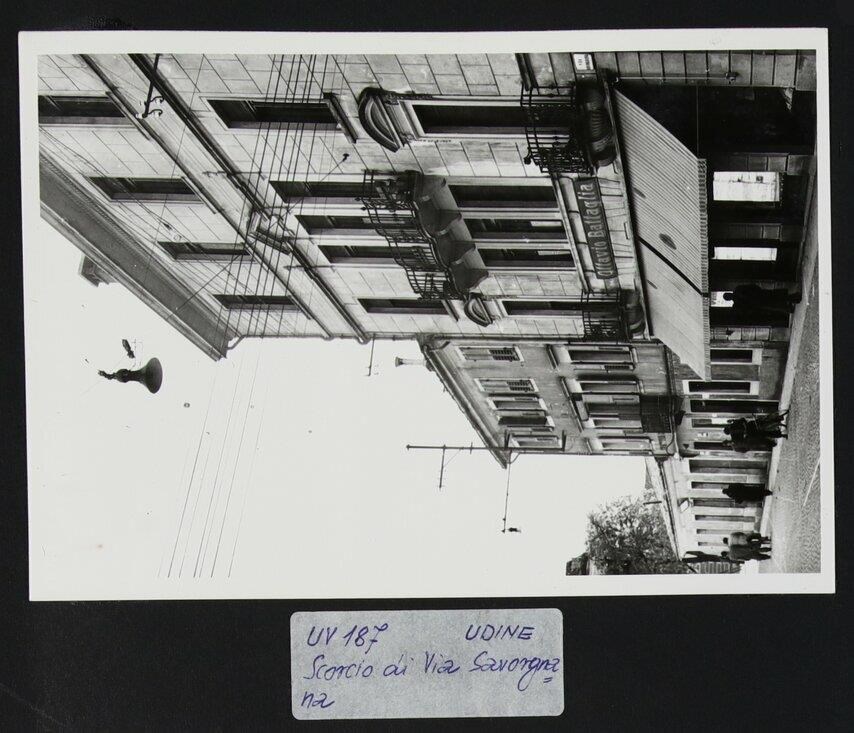 Ottavio Battaglia
UV 187 UDINE
Scorcio di Via Savorgna=
na